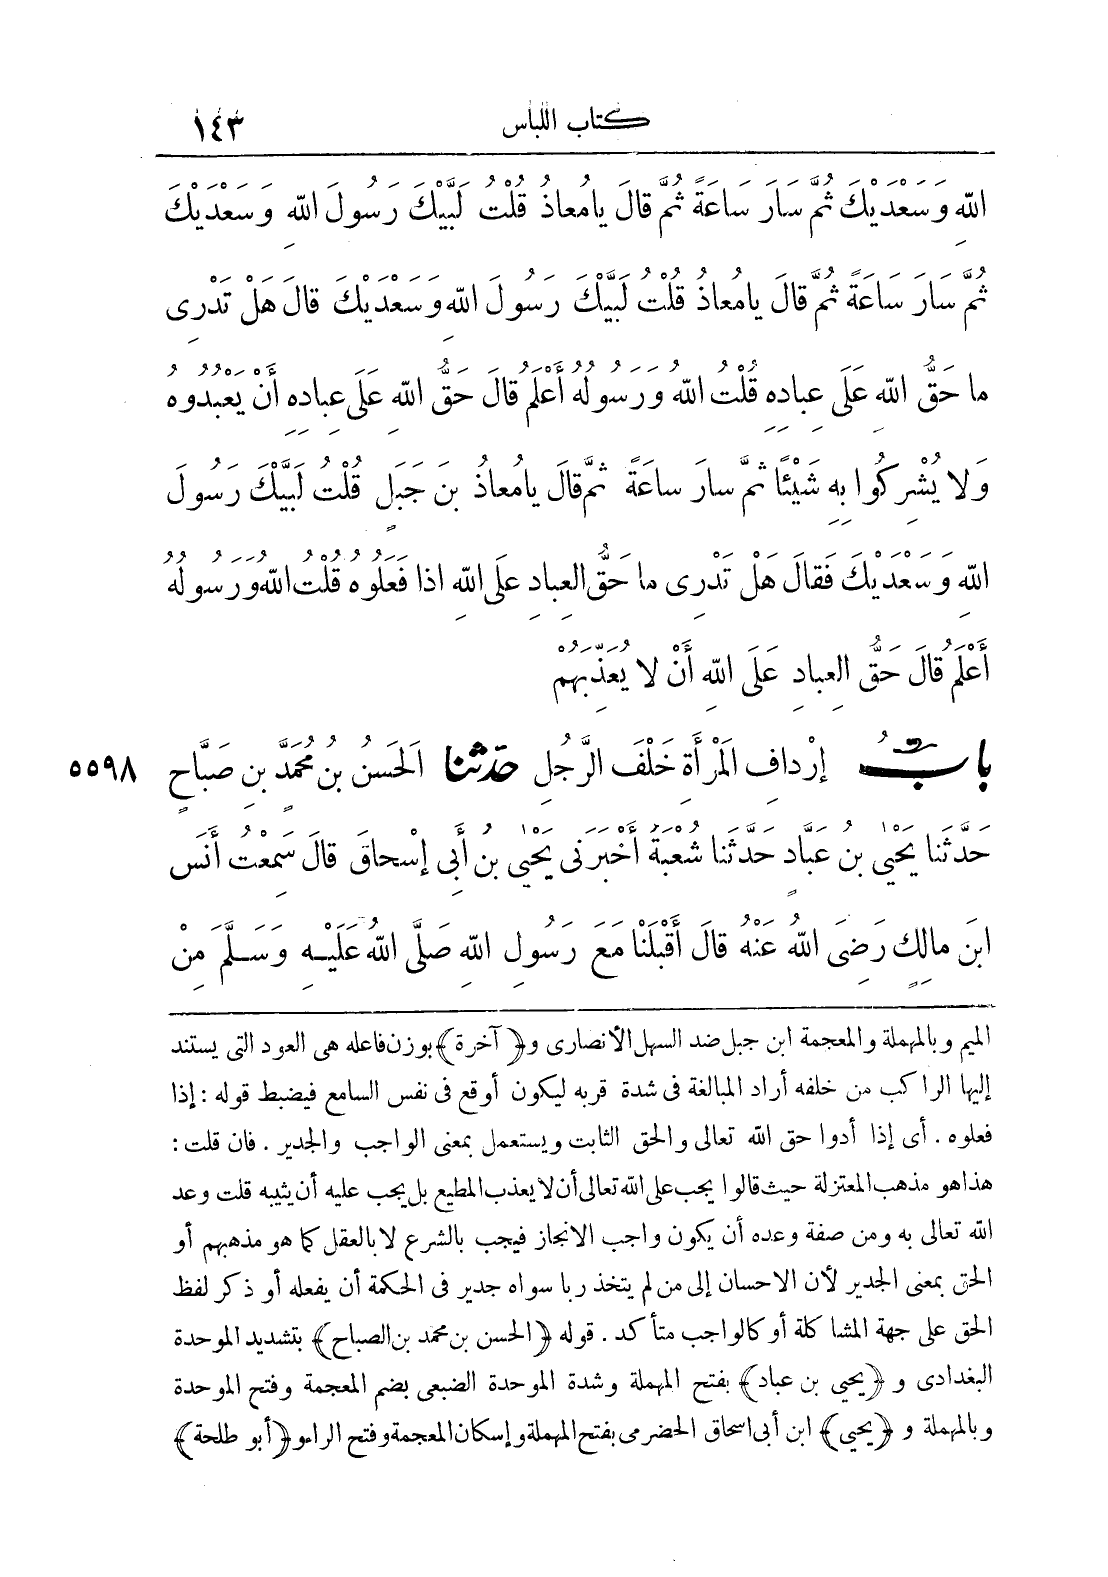 كتاب اللباس ١٤٣
اللهِ وَسَعْدَيْكَ ثُمَّ سَارَ سَاعَةً ثُمَّ قالَ يامُعاذُ قُلْتُ لَبَّيْكَ رَسُولَ اللهِ وَسَعْدَيْكَ
ثُمَّ سَارَ سَاعَةً ثُمَّ قالَ يامُعاذُ قُلْتُ لَبَّيْكَ رَسُولَ اللهِ وَسَعْدَيْكَ قالَ هَلْ تَدْرِى
ما حَقُّ اللهِ عَلَى عِبادِهِ قُلْتُ اللهُ وَرَسُولُهُ أَعْلَمُ قالَ حَقُّ اللهِ عَلَى عِبادِهِ أَنْ يَعْبُدُوهُ
وَلا يُشْرِكُوا بِهِ شَيْئًا ثمَّ سارَ ساعَةً ثمَّ قالَ يامُعاذُ بنَ جَبَلٍ قُلْتُ لَبَّيْكَ رَسُولَ
اللهِ وَسَعْدَيْكَ فَقالَ هَلْ تَدْرِى ما حَقُّ العِبادِ عَلَى اللهِ اذا فَعَلُوهُ قُلْتُ اللهُ وَرَسُولُهُ
أَعْلَمُ قالَ حَقُّ العِبادِ عَلَى اللهِ أَنْ لا يُعَذِّبَهُمْ
بابُ إرْدافِ المَرْأَةِ خَلْفَ الرَّجُلِ حدّثنا الحَسَنُ بنُ مُحَمَّدِ بنِ صَبَّاحٍ ٥٥٩٨
حَدَّثَنا يَحْيَى بنُ عَبَّادٍ حَدَّثَنا شُعْبَةُ أَخْبَرَنِى يَحْيَى بنُ أَبِى إسْحاقَ قالَ سَمِعْتُ أَنَسَ
ابنَ مالِكٍ رَضِىَ اللهُ عَنْهُ قالَ أَقْبَلْنا مَعَ رَسُولِ اللهِ صَلَّى اللهُ عَلَيْهِ وَسَلَّمَ مِنْ
الميم وبالمهملة والمعجمة ابن جبل ضد السهل الأنصارى و﴿آخرة﴾ بوزن فاعله هى العود التى يستند
إليها الراكب من خلفه أراد المبالغة فى شدة قربه ليكون أوقع فى نفس السامع فيضبط قوله : إذا
فعلوه . أى إذا أدوا حق الله تعالى والحق الثابت ويستعمل بمعنى الواجب والجدير . فان قلت :
هذا هو مذهب المعتزلة حيث قالوا يجب على الله تعالى أن لا يعذب المطيع بل يجب عليه أن يثيبه قلت وعد
الله تعالى به ومن صفة وعده أن يكون واجب الانجاز فيجب بالشرع لا بالعقل كما هو مذهبهم أو
الحق بمعنى الجدير لأن الاحسان إلى من لم يتخذ ربا سواه جدير فى الحكمة أن يفعله أو ذكر لفظ
الحق على جهة المشاكلة أو كالواجب متأكد . قوله ﴿الحسن بن محمد بن الصباح﴾ بتشديد الموحدة
البغدادى و ﴿يحيى بن عباد﴾ بفتح المهملة وشدة الموحدة الضبعى بضم المعجمة وفتح الموحدة
وبالمهملة و ﴿يحيى﴾ ابن أبى اسحاق الحضرمى بفتح المهملة وإسكان المعجمة وفتح الراء و﴿أبو طلحة﴾